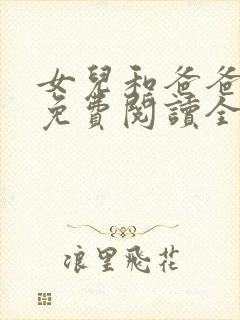 女兒和爸爸
免費閱讀全
浪里飛花